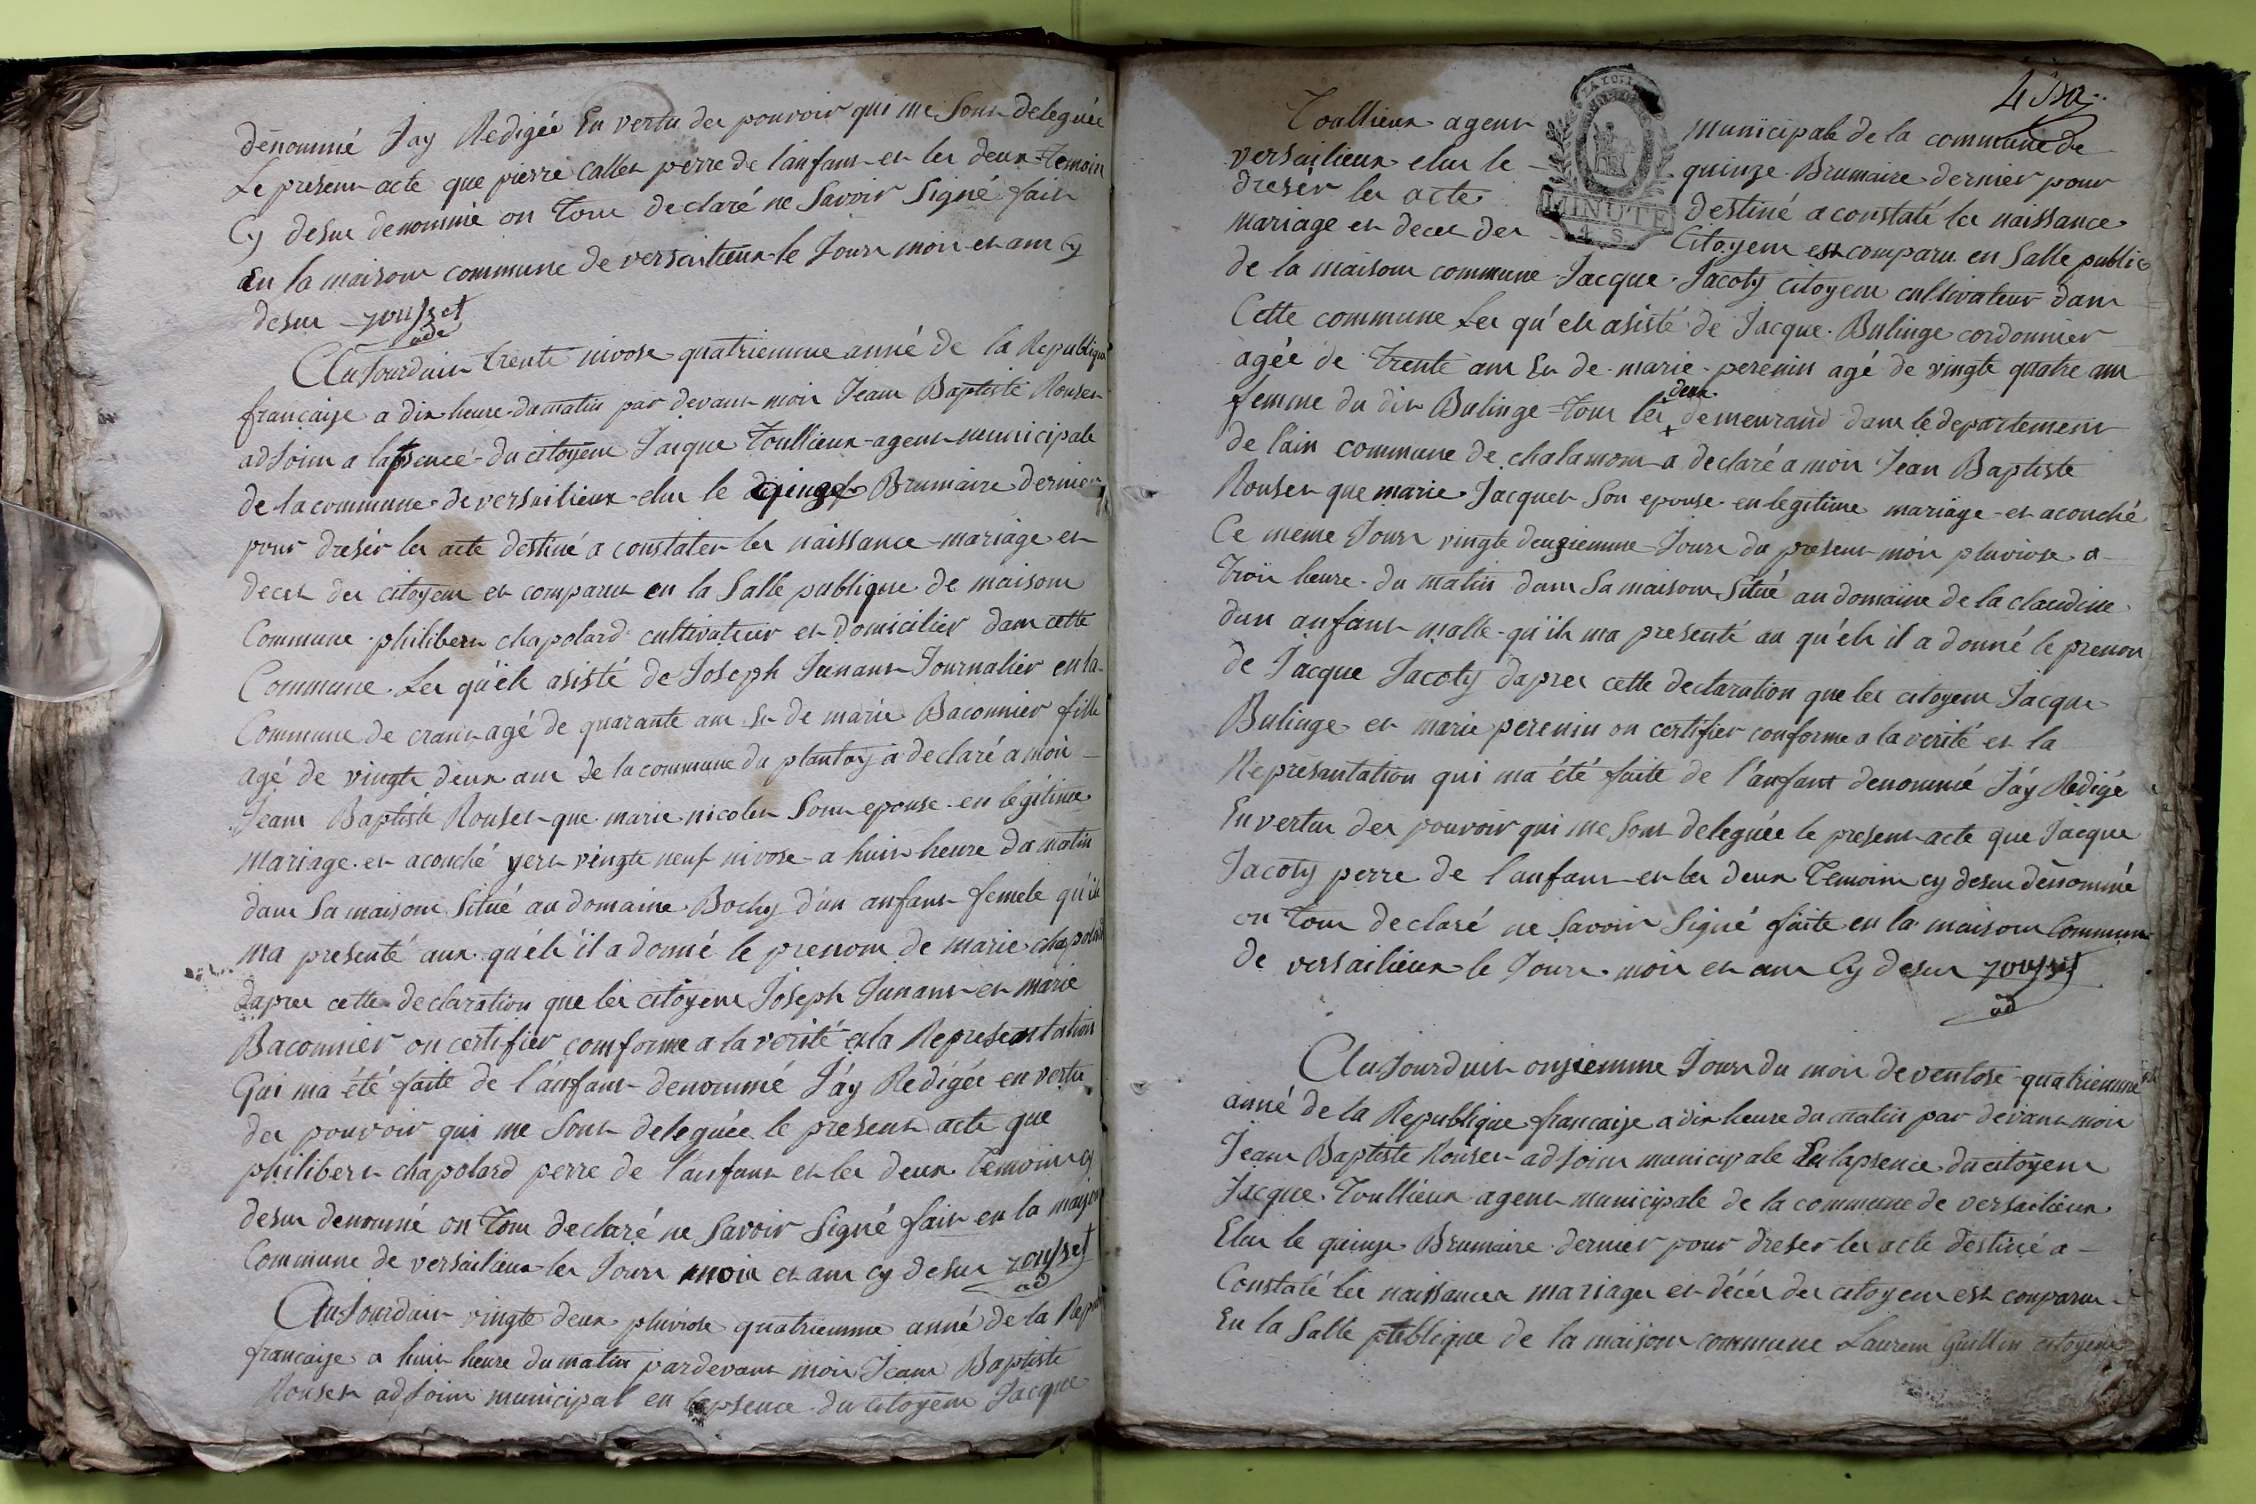 dénommé Jay Redigée En vertu des pouvoir qui me Sont deleguée
Le present acte que pierre Callet perre de l'anfant et les deux temoin
Cy desus denommé on tous declaré ne Savoir Signé fait
En la maison commune de versailieux le Jour mois et ans Cy
desus rousset
ade
AuJourduit trente nivose quatriemme anné de la Republique
française a dix heure du matin par devant moi Jean Baptiste Rouset
adJoint a lapsence du citoyen Jacque Toullieux agent municipale
de la commune de versailieux elus le quinze Brumaire dernier
pour dresér les acte destiné a constater les naissance mariage et
deces des citoyens et comparut en la Salle publique de maison
Commune philibert chapolard cultivateur et domicilier dans cette
Commune Les qu'éls asisté de Joseph Junant Journalier en la
Commune de crans agé de quarante ans Et de marie Baconnier fille
agé de vingte deux ans de la commune du plantay a declaré a moi
Jean Baptiste Rouset que marie nicolet Sont epouse en legitime
Mariage et aconché yert vingte neuf nivose a huit heure du matin
dans Sa maison Situé au domaine Bochy d'un anfant femele qu'il
ma presenté aux qu'éls il a donné le prenom de marie chapolard
dapres cette declaration que les citoyens Joseph Junant et marie
Baconnier on certifier conforme a la verité et la Represantation
Qui ma été faite de l'anfant denommé J'áy Redigée en vertu
des pouvoir qui me Sont deleguée le present acte que
philibert chapolard perre de l'anfant et les deux temoins cy
desus denomné on tous declaré ne Savoir Signé fait en la maison
Commune de versailieux les Jour mois et ans cy desus rousset
ad
AuJourduit vingte deux pluviose quatriemme anné de la Repu
française a huit heure du matin pardevant moi Jean Baptiste
Rouset adJoint municipal en lapsence du citoyen Jacque
Toullieux agent municipale de la commune de
versailieux elus le quinze Brumaire dernier pour
dresér les acte destiné a constaté les naissance
mariage et deces des Citoyens est comparu en Salle public
MINUTE
4 S
de la maison commune Jacque Jacoty citoyen cultivateur dans
Cette commune Les qu'els asisté de Jacque Bulinge cordonnier
agée de trente ans Et de marie perenin agé de vingte quatre ans
femme du dit Bulinge tous les deux demeurand dans le departement
de l'ain commune de chalamont a declaré a moi Jean Baptiste
Rouset que marie Jacquet Son epouse en legitime mariage et aconché
Ce meme Jour vingte deuziemme Jour du present mois pluviose a
trois heure du matin dans Sa maison Situé au domaine de la claudine
dun anfant malle qu'ils ma presenté au qu'els il a donné le prenon
de Jacque Jacoty dapres cette declaration que les citoyens Jacque
Bulinge et marie perenin on certifier conforme a la verité et la
Represantation qui ma été faite de l'anfant denommé J'áy Redigé
En vertu des pouvoir qui me Sont deleguée le present acte que Jacque
Jacoty perre de l'anfant et les deux temoin cy desus dénommé
on tous declaré ne Savoir Signé faite en la maison Commune
de versailieux le Jour mois et ans Cy desus rousset
ad
AuJourduit onziemme Jour du mois de ventose quatriemme
anné de la Republique française a dix heure du matin par devant moi
Jean Baptiste Rouset adJoint municipale En lapsence du citoyen
Jacque Toullieux agent municipale de la commune de versailieux
Elus le quinze Brumaire dernier pour dreser les acte destiné a
Constaté les naissances mariages et décés des citoyens est comparu
En la Salle publique de la maison commune Laurent Guillin citoyen